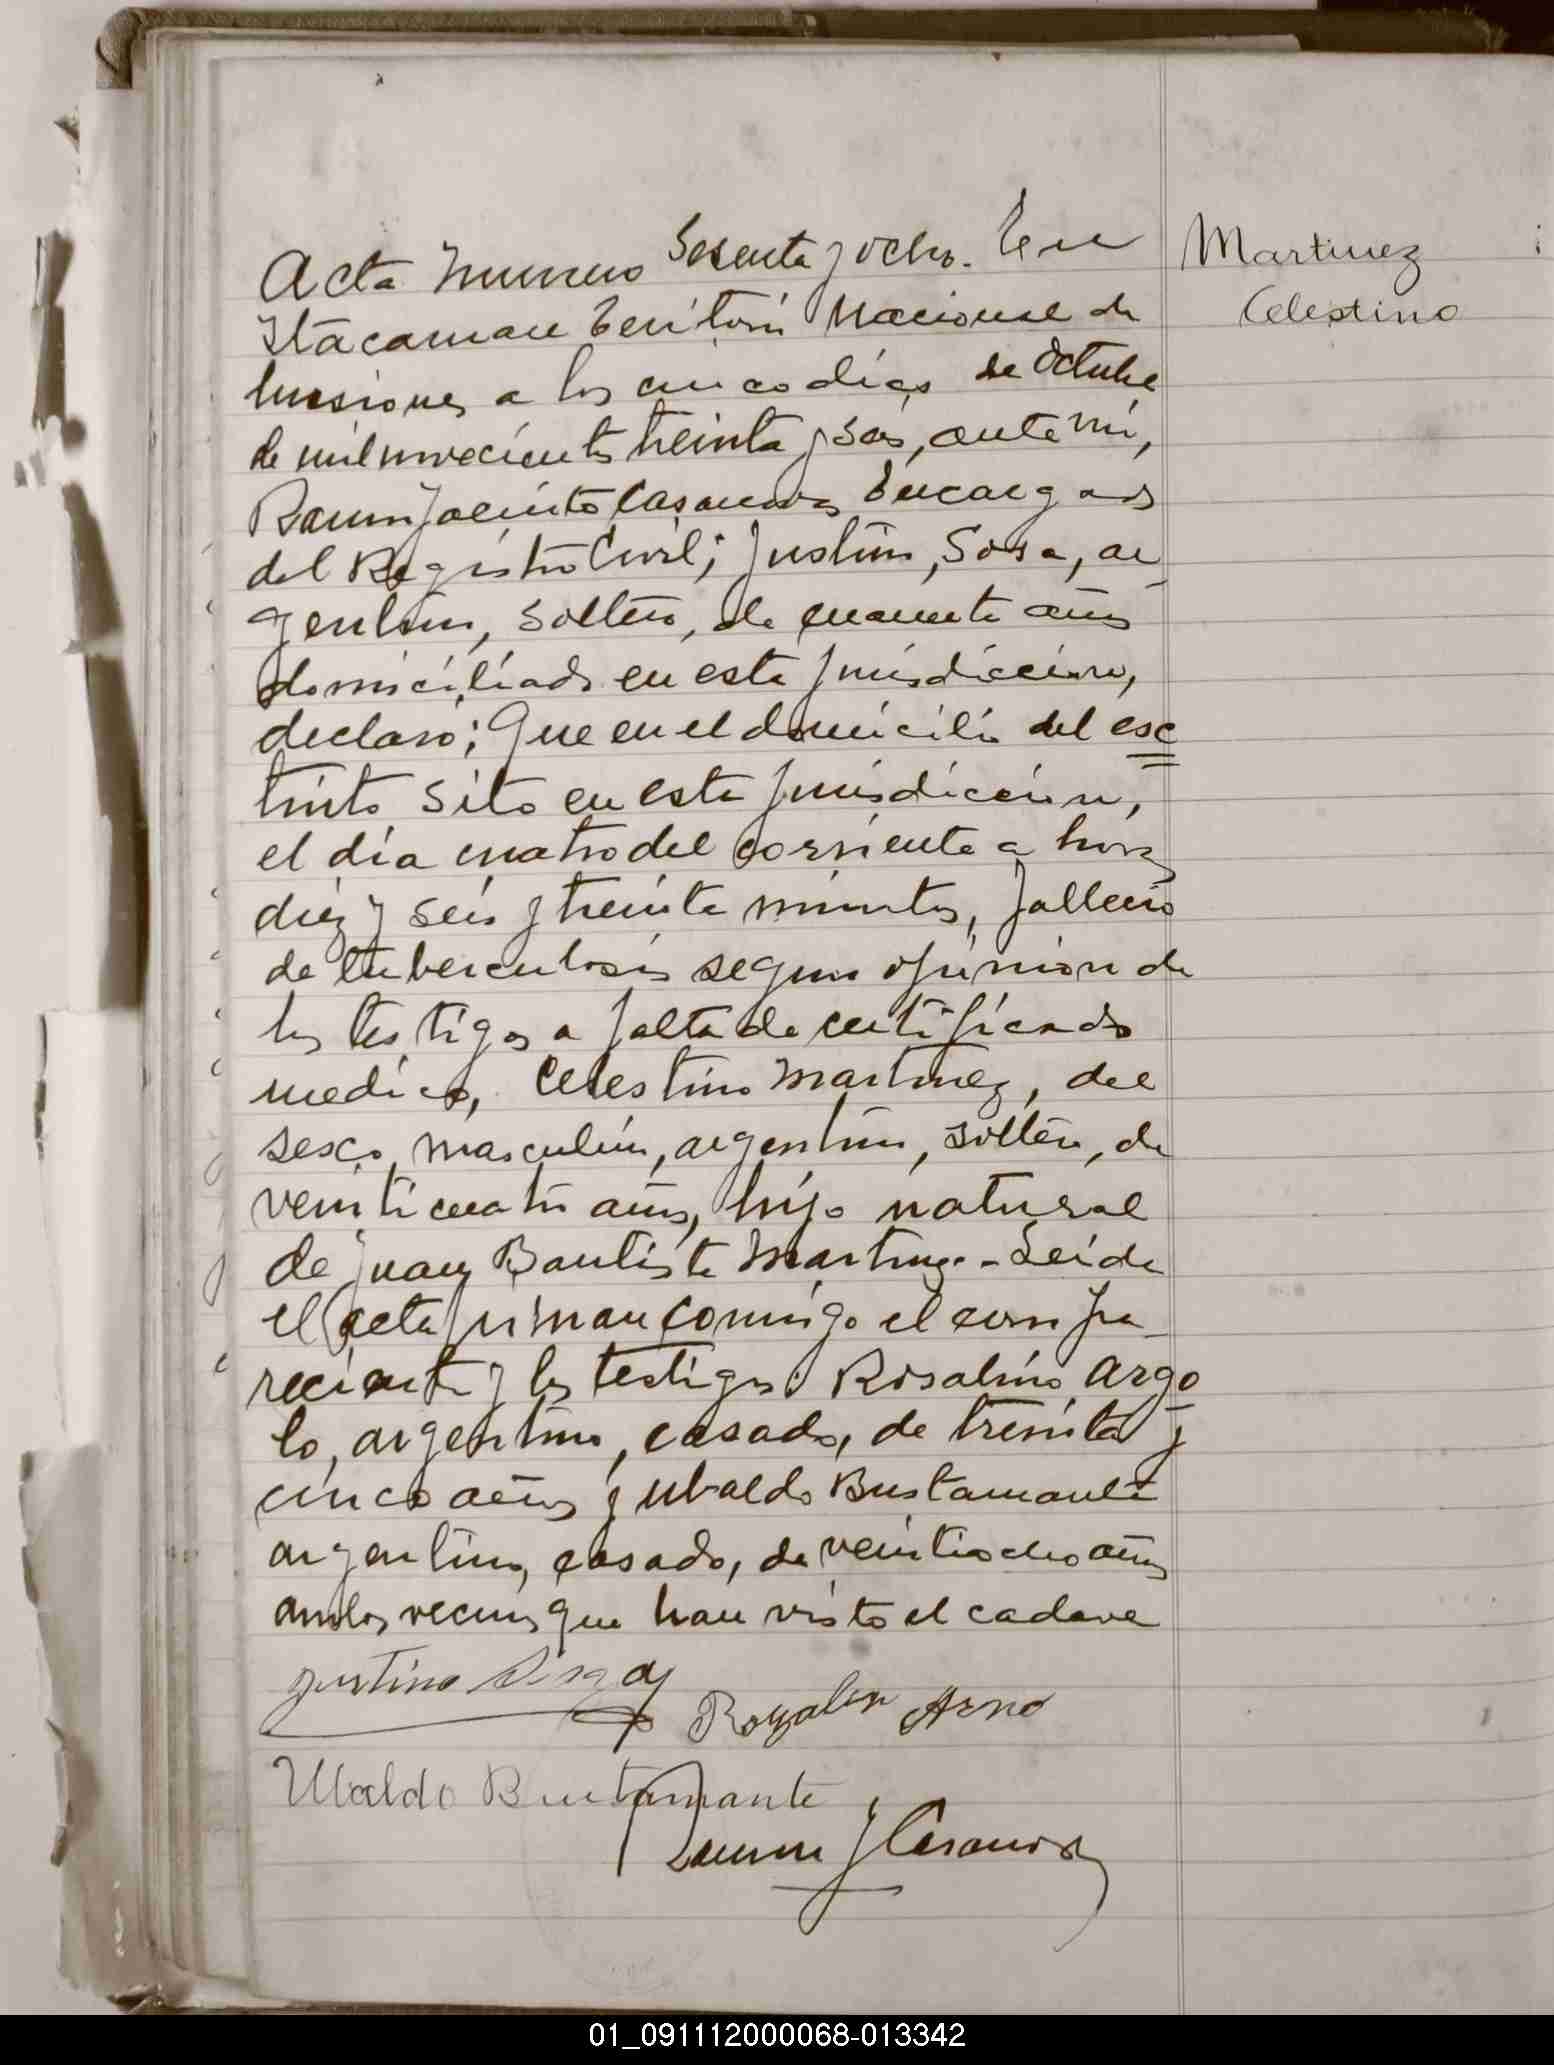 Acta Numero Sesenta y ocho. En
Itacaruare Territorio Nacional de
Misiones a los cinco días de Octubre
de mil novecientos treinta y seis, ante mi,
Ramon Jacinto Casanova Encargado
del Registro Civil; Justino, Sosa, ar
gentino, soltero, de cuarenta años
domiciliado en esta jurisdiccion,
declaró; Que en el domicilio del esc
tinto sito en esta jurisdiccion,
el día cuatro del corriente a horas
diez y seis y treinta minutos, fallecio
de tuberculosis segun opinion de
los testigos a falta de certificado
medico, Celestino Martinez, del
sesco masculino, argentino, soltero, de
veinticuatro años, hijo natural
de Juan Bautista Martinez.- Leida
el acta firman comigo el compa-
reciente y los testigos: Rosalino Argo
lo, argentino, casado, de treinta y
cinco años y Ubaldo Bustamante
argentino, casado, de veintiocho años
ambos vecinos que han visto el cadave
Justino Sosa
Rozalin Arno
Ubaldo Bustamante
Ramon J Casanova
Martinez
Celestino
01_091112000068-013342